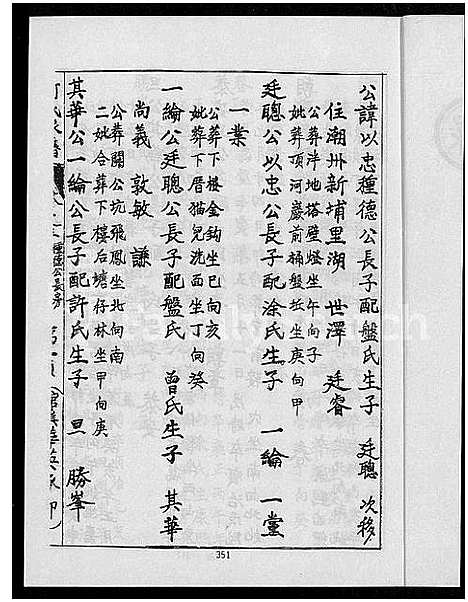 公諱以忠種德公長子配盤氏生子 廷聰 次移
住潮州新埔里湖 世澤 廷睿
公葬洋地塔壁燈坐午向子
妣葬頂河巖前桶盤坵坐庚向甲
廷聰公以忠公長子配涂氏生子 一綸 一堂
一業
公葬下樓金鈎坐巳向亥
妣葬下厝猫兒洗面坐丁向癸
一綸公廷聰公長子配盤氏 曾氏生子 其華
尚義 敦敏 謙
公葬關公坑飛鳳坐北向南
二妣合葬下樓后塘仔林坐甲向庚
其華公一綸公長子配許氏生子 旦 勝峯
種德公長房
351